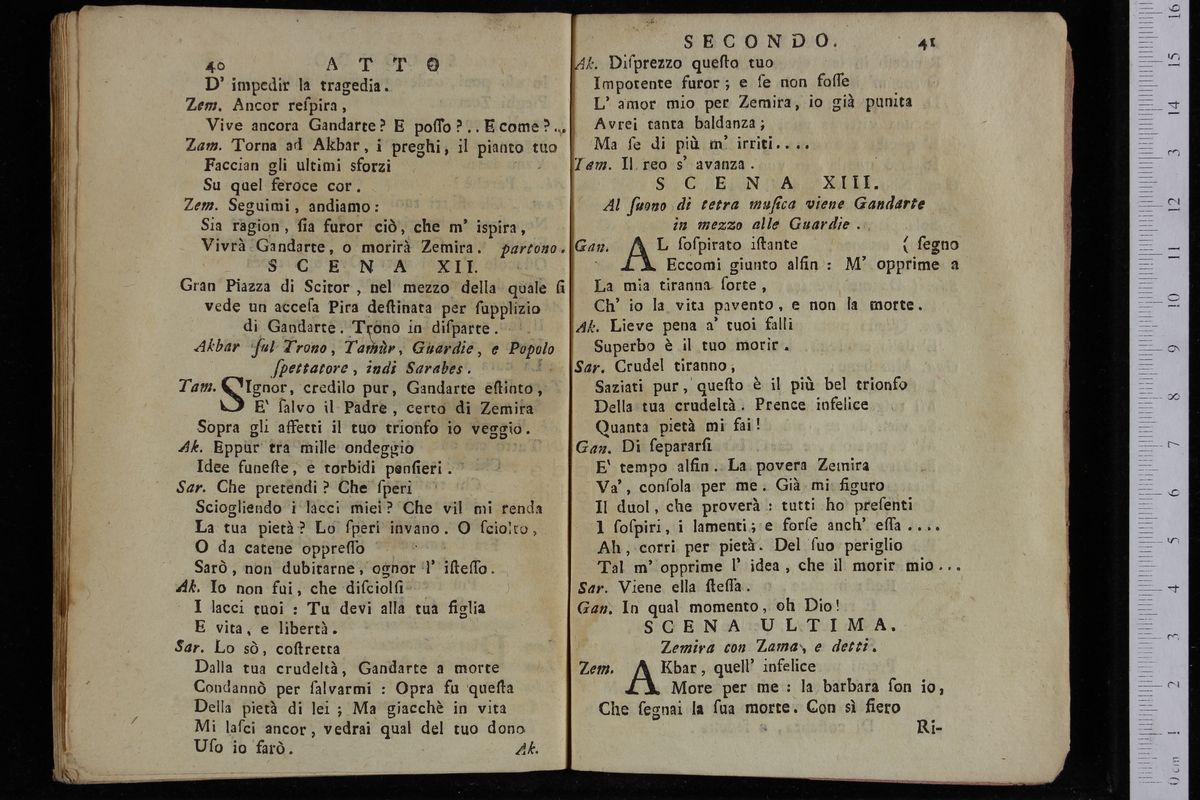 40 ATTO
D' impedir la tragedia.
Zem. Ancor reſpira,
Vive ancora Gandarte? E poſſo?.. E come?...
Zam. Torna ad Akbar, i preghi, il pianto tuo
Faccian gli ultimi sforzi
Su quel feroce cor.
Zem. Seguimi, andiamo:
Sia ragion, ſia furor ciò, che m' iſpira,
Vivrà Gandarte, o morirà Zemira. partono.
SCENA XII.
Gran Piazza di Scitor, nel mezzo della quale ſi
vede un acceſa Pira deſtinata per ſupplizio
di Gandarte. Trono in diſparte.
Akbar ſul Trono, Tamùr, Guardie, e Popolo
ſpettatore, indi Sarabes.
Tam. SIgnor, credilo pur, Gandarte eſtinto,
E' ſalvo il Padre, certo di Zemira
Sopra gli affetti il tuo trionfo io veggio.
Ak. Eppur tra mille ondeggio
Idee funeſte, e torbidi penſieri.
Sar. Che pretendi? Che ſperi
Sciogliendo i lacci miei? Che vil mi renda
La tua pietà? Lo ſperi invano. O ſciolto,
O da catene oppreſſo
Sarò, non dubitarne, ognor l' iſteſſo.
Ak. Io non fui, che diſciolſi
I lacci tuoi: Tu devi alla tua figlia
E vita, e libertà.
Sar. Lo sò, coſtretta
Dalla tua crudeltà, Gandarte a morte
Condannò per ſalvarmi: Opra fu queſta
Della pietà di lei; Ma giacchè in vita
Mi laſci ancor, vedrai qual del tuo dono
Uſo io farò. Ak.
SECONDO. 41
Ak. Diſprezzo queſto tuo
Impotente furor; e ſe non foſſe
L' amor mio per Zemira, io già punita
Avrei tanta baldanza;
Ma ſe di più m' irriti....
Tam. Il reo s' avanza.
SCENA XIII.
Al ſuono di tetra muſica viene Gandarte
in mezzo alle Guardie.
Gan. AL ſoſpirato iſtante ( ſegno
Eccomi giunto alfin: M' opprime a
La mia tiranna ſorte,
Ch' io la vita pavento, e non la morte.
Ak. Lieve pena a' tuoi falli
Superbo è il tuo morir.
Sar. Crudel tiranno,
Saziati pur, queſto è il più bel trionfo
Della tua crudeltà. Prence infelice
Quanta pietà mi fai!
Gan. Di ſepararſi
E' tempo alfin. La povera Zemira
Va', conſola per me. Già mi figuro
Il duol, che proverà: tutti ho preſenti
I ſoſpiri, i lamenti; e forſe anch' eſſa....
Ah, corri per pietà. Del ſuo periglio
Tal m' opprime l' idea, che il morir mio...
Sar. Viene ella ſteſſa.
Gan. In qual momento, oh Dio!
SCENA ULTIMA.
Zemira con Zama, e detti.
Zem. AKbar, quell' infelice
More per me: la barbara ſon io,
Che ſegnai la ſua morte. Con sì fiero
Ri-
0 cm 1 2 3 4 5 6 7 8 9 10 11 12 13 14 15 16